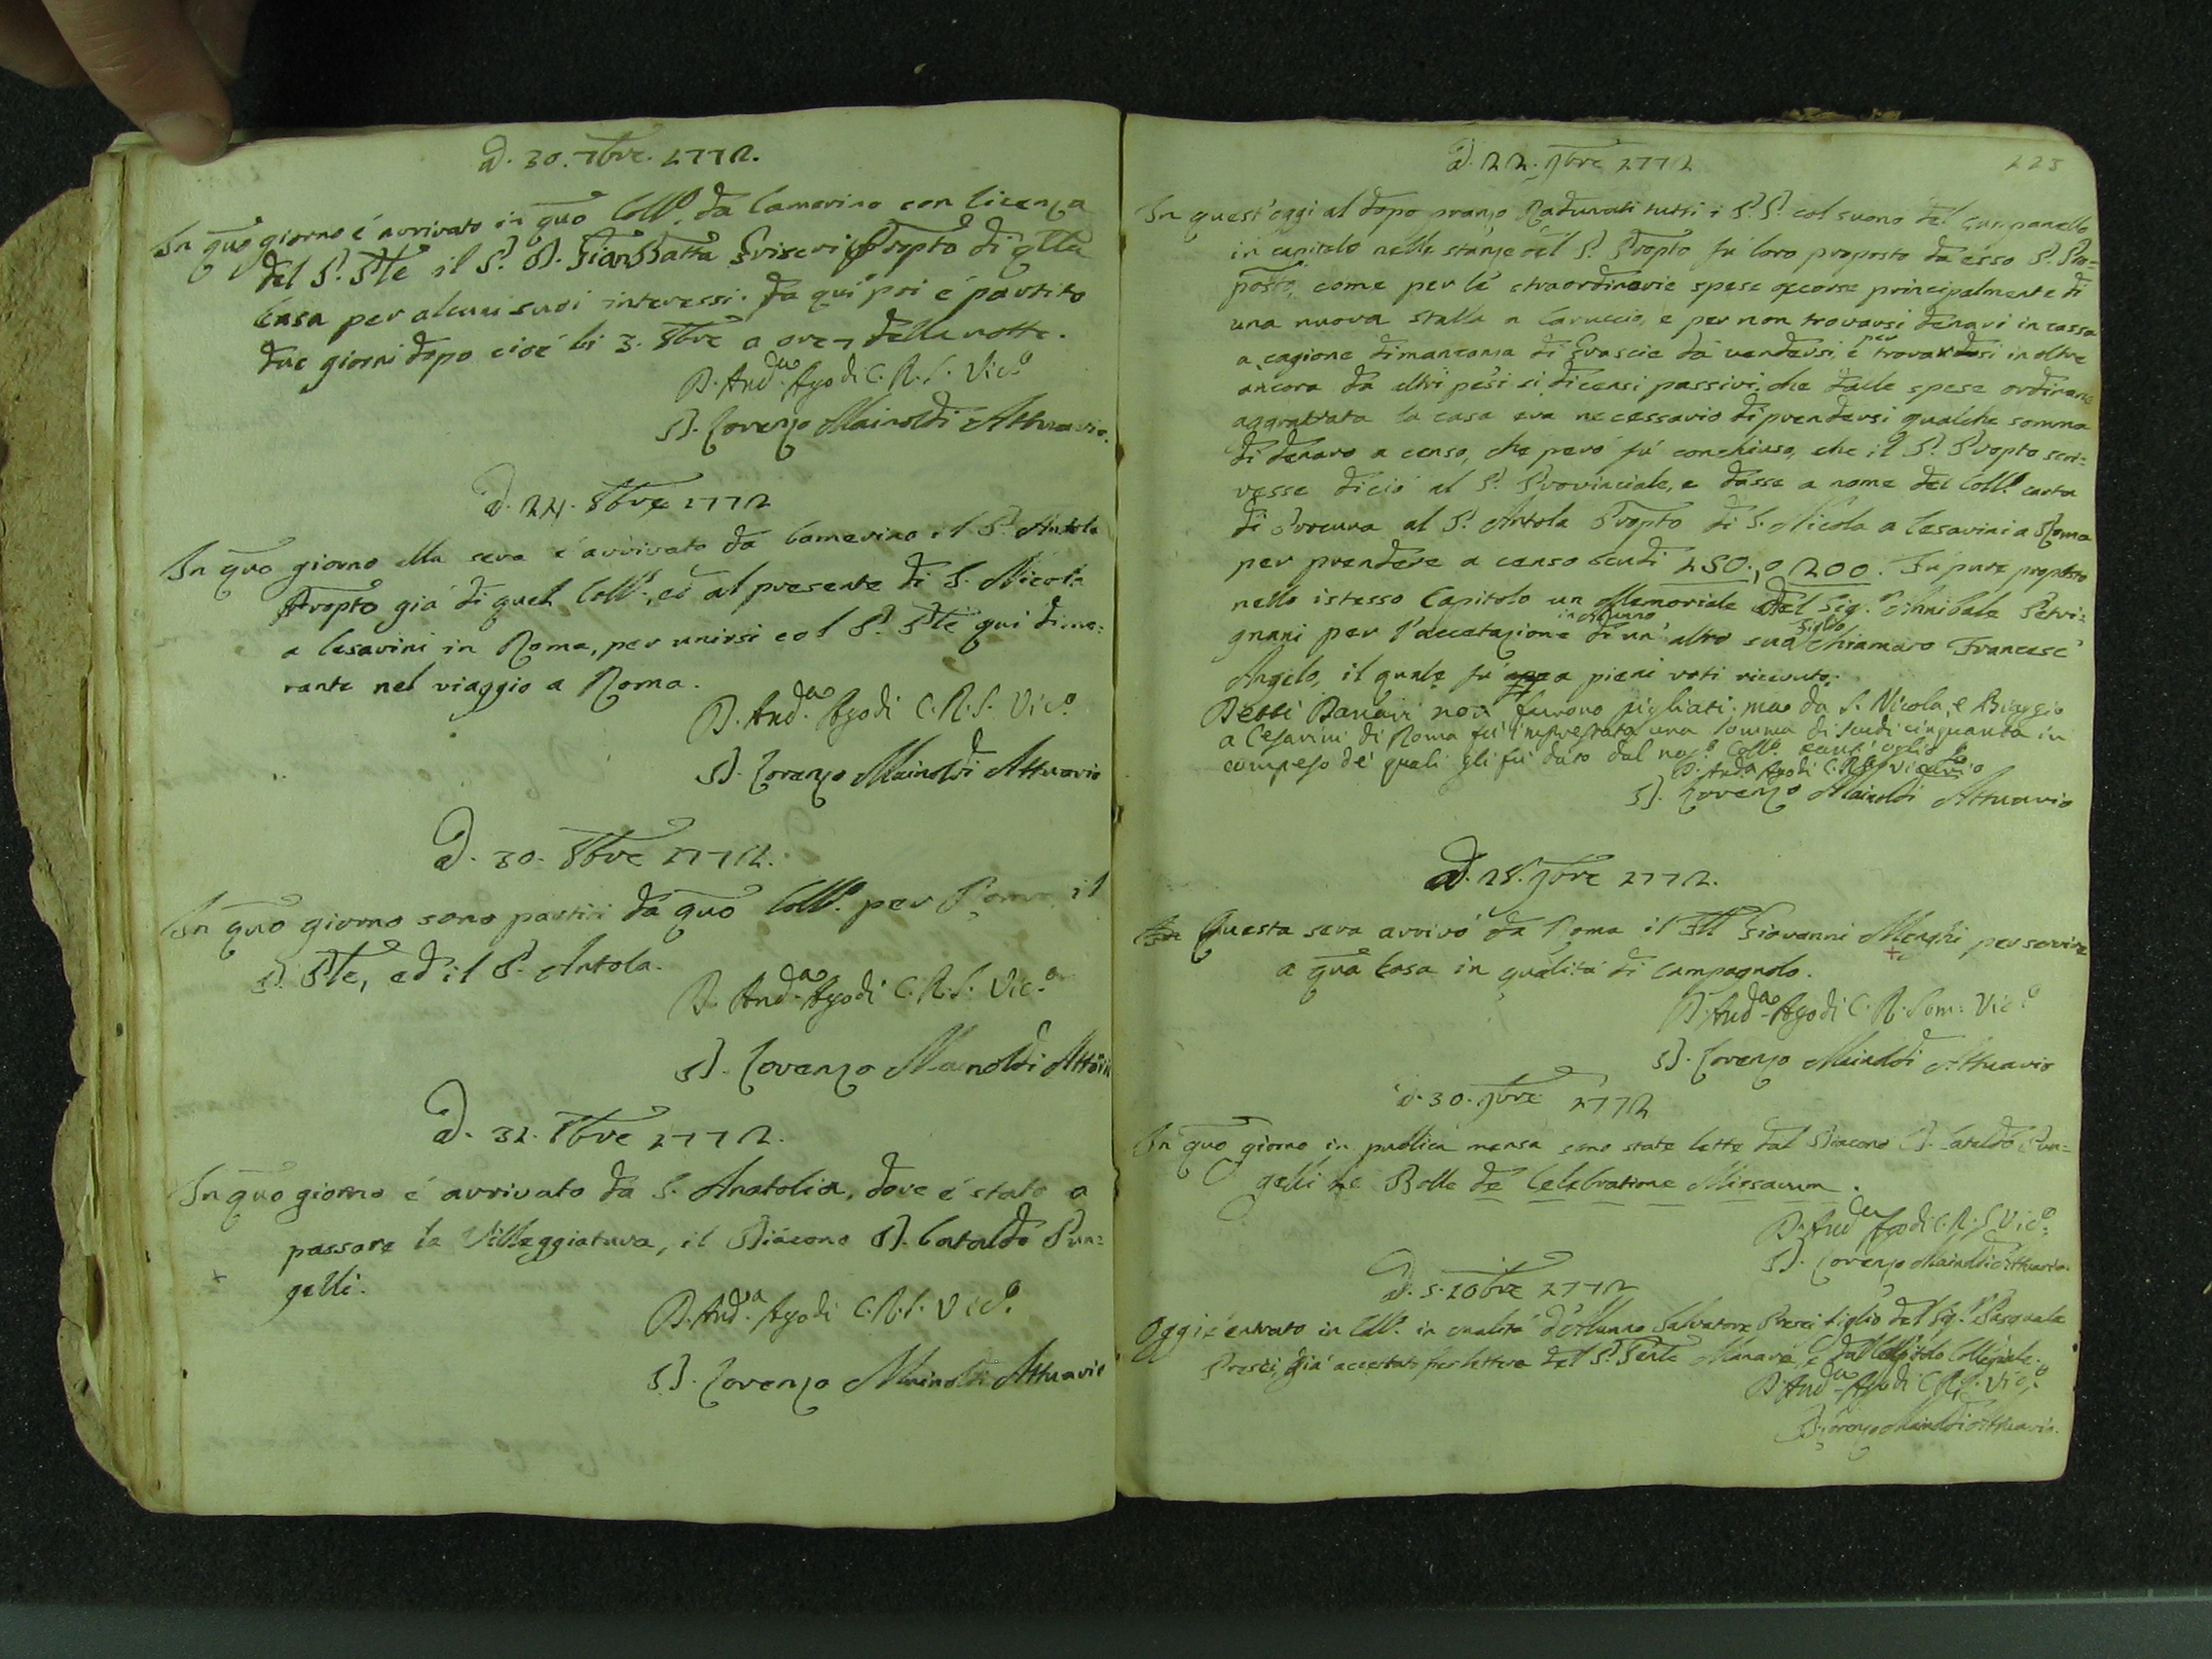 A d. 30. 7bre. 1772.
In qūo giorno é arrivato in qūo Coll.o da Camerino con licenza
del P. Ple il P. D. GianBatta Griseri Propto di qlla
Casa per alcuni suoi interessi. Da qui poi é partito
due giorni dopo cioé li 3. 8bre a ore 7 della notte.
D. And.a Agodi C. R. S. Vic.o
D. Lorenzo Mainoldi Attuario.
A d. 24. 8bre 1772
In qūo giorno alla sera é arrivato da Camerino il P. Antola
Propto giá di quel Coll.o, ed al presente di S. Nicola
a Cesarini in Roma, per unirsi col P. Ple qui dimo=
rante nel viaggio a Roma.
D. And.a Agodi C. R. S. Vic.o
D. Lorenzo Mainoldi Attuario
A d. 30. 8bre 1772.
In qūo giorno sono partiti da qūo Coll.o per Roma il
P. Ple, ed il P. Antola.
D. And.a Agodi C. R. S. Vic.o
D. Lorenzo Mainoldi Attūrio
A d. 31. 8bre 1772.
In qūo giorno é arrivato da S. Anatolia, dove é stato a
passare la Villeggiatura, il Diacono D. Cataldo Pun=
gelli.
D. And.a Agodi C. R. S. Vic.o
D. Lorenzo Mainoldi Attuario
223
A d. 22. 9bre 1772
In quest'oggi al dopo pranzo Radunati tutti i P. P. col suono del campanello
in capitolo nelle stanze del P. Propto fú loro proposto da esso P. Pro=
posto, come per le straordinarie spese occorse principalmente di
una nuova stalla a Caruccio, e per non trovarsi denari in cassa
a cagione di mancanza di Grascie da vendersi, e per trovarsi in oltre
ancora da altri pesi si di censi passivi, che dalle spese ordinarie
aggravata la casa era necessario di prendersi qualche somma
di denaro a censo, che peró fú conchiuso, che il P. Propto scri=
vesse di ció al P. Provinciale, e dasse a nome del Coll.o carta
di Procura al P. Antola Propto di S. Nicola a Cesarini a Roma
per prendere a censo scudi 150., o 200. Fu pure proposto
nello istesso Capitolo un Memoriale del Sig.r Annibale Petri=
gnani per l'accetazione in Alunno di un' altro suo Figlio chiamato Francesc'
Angelo, il quale fú a pieni voti ricevuto.
Detti Danari non furono pigliati. ma da S. Nicola, e Biaggio
a Cesarini di Roma fú imprestata una somma di scudi cinquanta in
compeso de' quali gli fú dato dal nos.o Coll.o oglio
D. And.a Agodi C. R. S. Vicario
D. Lorenzo Mainoldi Attuario
A d. 25. 9bre 1772.
Questa sera arrivó da Roma il Fll Giovanni Menghi per servire
a qūa Casa in qualitá di campagnolo.
D. And.a Agodi C. R. Som: Vic.o
D. Lorenzo Mainoldi Attuario
A d. 30. 9bre 1772
In qūo giorno in publica mensa sono state lette dal Diacono D. Cataldo Pun=
gelli le Bolle de Celebratione Missarum.
D. And.a Agodi C. R. S. Vic.o
D. Lorenzo Mainoldi Attuario.
A d. 5. 10bre 1772
Oggi é entrato in Coll.o in qualitá d'Alunno Salvatore Presci figlio del Sig.r Pasquale
Presci, giá accettato per lettera del P. Gnle Manara, e dal Capitolo Collegiale.
D. And.a Agodi C. R. S. Vic.o
D. Lorenzo Mainoldi Attuario.